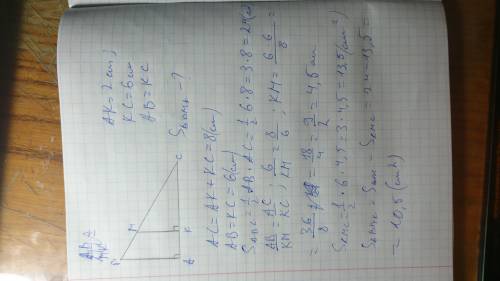 AK = 2 cm
KC = 6 cm
AB = KC
S_ABMK - ?
B
M
A
K
C
AC = AK + KC = 8 (cm)
AB = KC = 6 (cm)
S_ABC = 1/2 AB · AC = 1/2 6 · 8 = 3 · 8 = 24 (cm
AB/KM = AC/KC ; 6/KM = 8/6 ; KM = 6·6/8 =
= 36/8 = 18/4 = 9/2 = 4,5 cm
S_KMC = 1/2 · 6 · 4,5 = 3 · 4,5 = 13,5 (cm²)
S_ABMK = S_ABC - S_KMC = 24 - 13,5 =
= 10,5 (cm²)